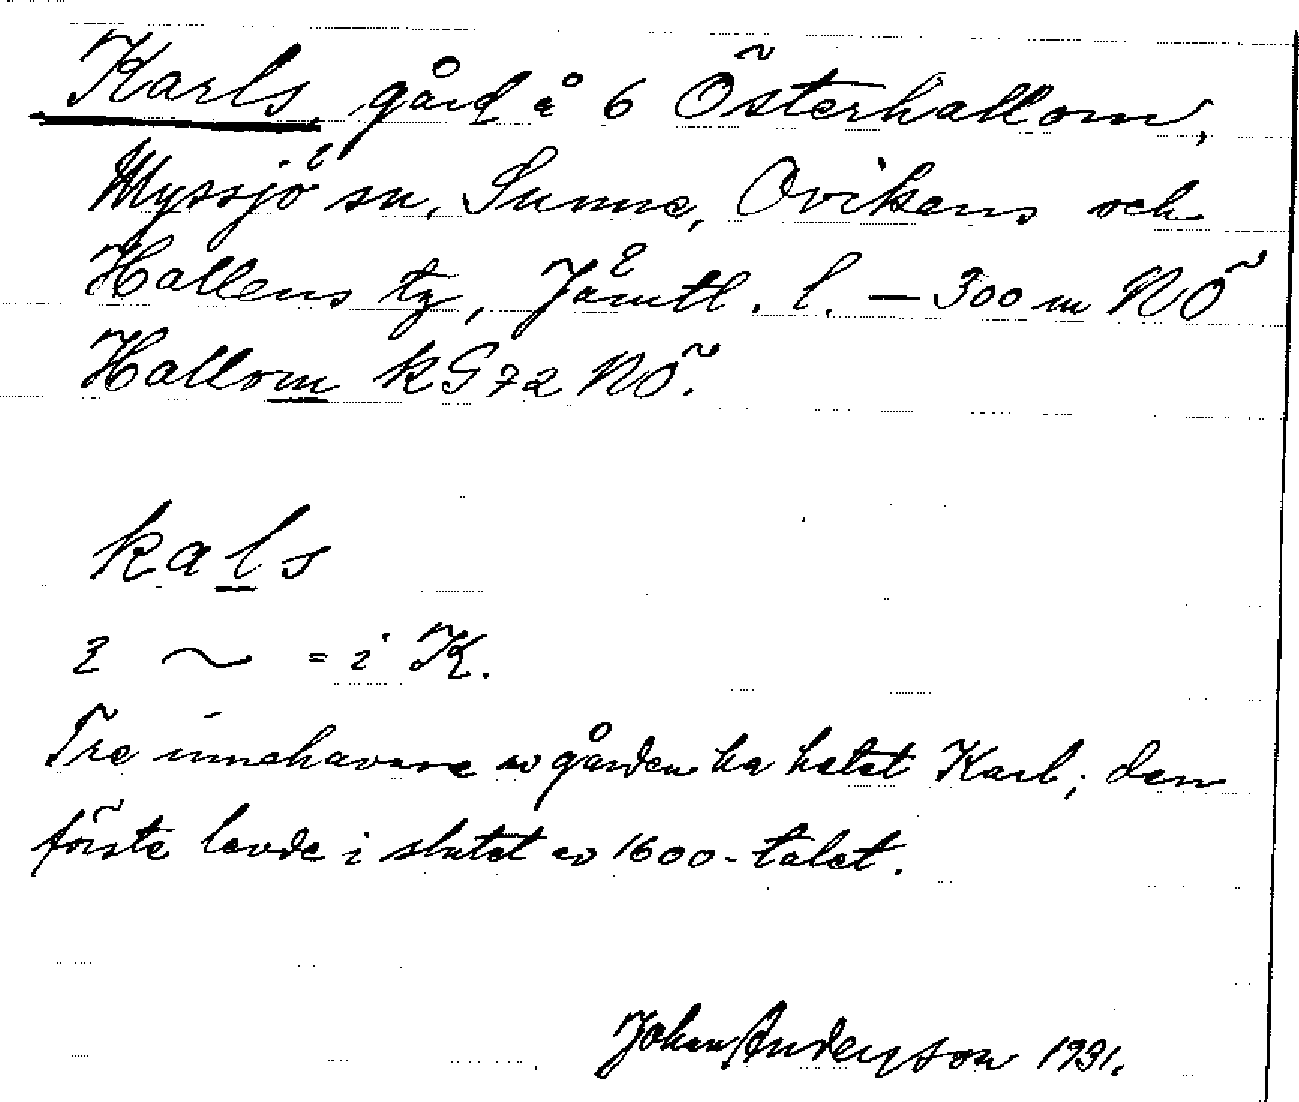 Karls gård å 6 Österhallom,
Myssjö sn, Sunne, Ovikens och
Hallens tg, Jämtl. l. — 300 m NÖ
Hallom kG72 NÖ.
kals
2 ~ = i K.
Tre innehavare av gården ha hetat Karl; den
förste levde i slutet av 1600-talet.
Johan Anderson 1931.